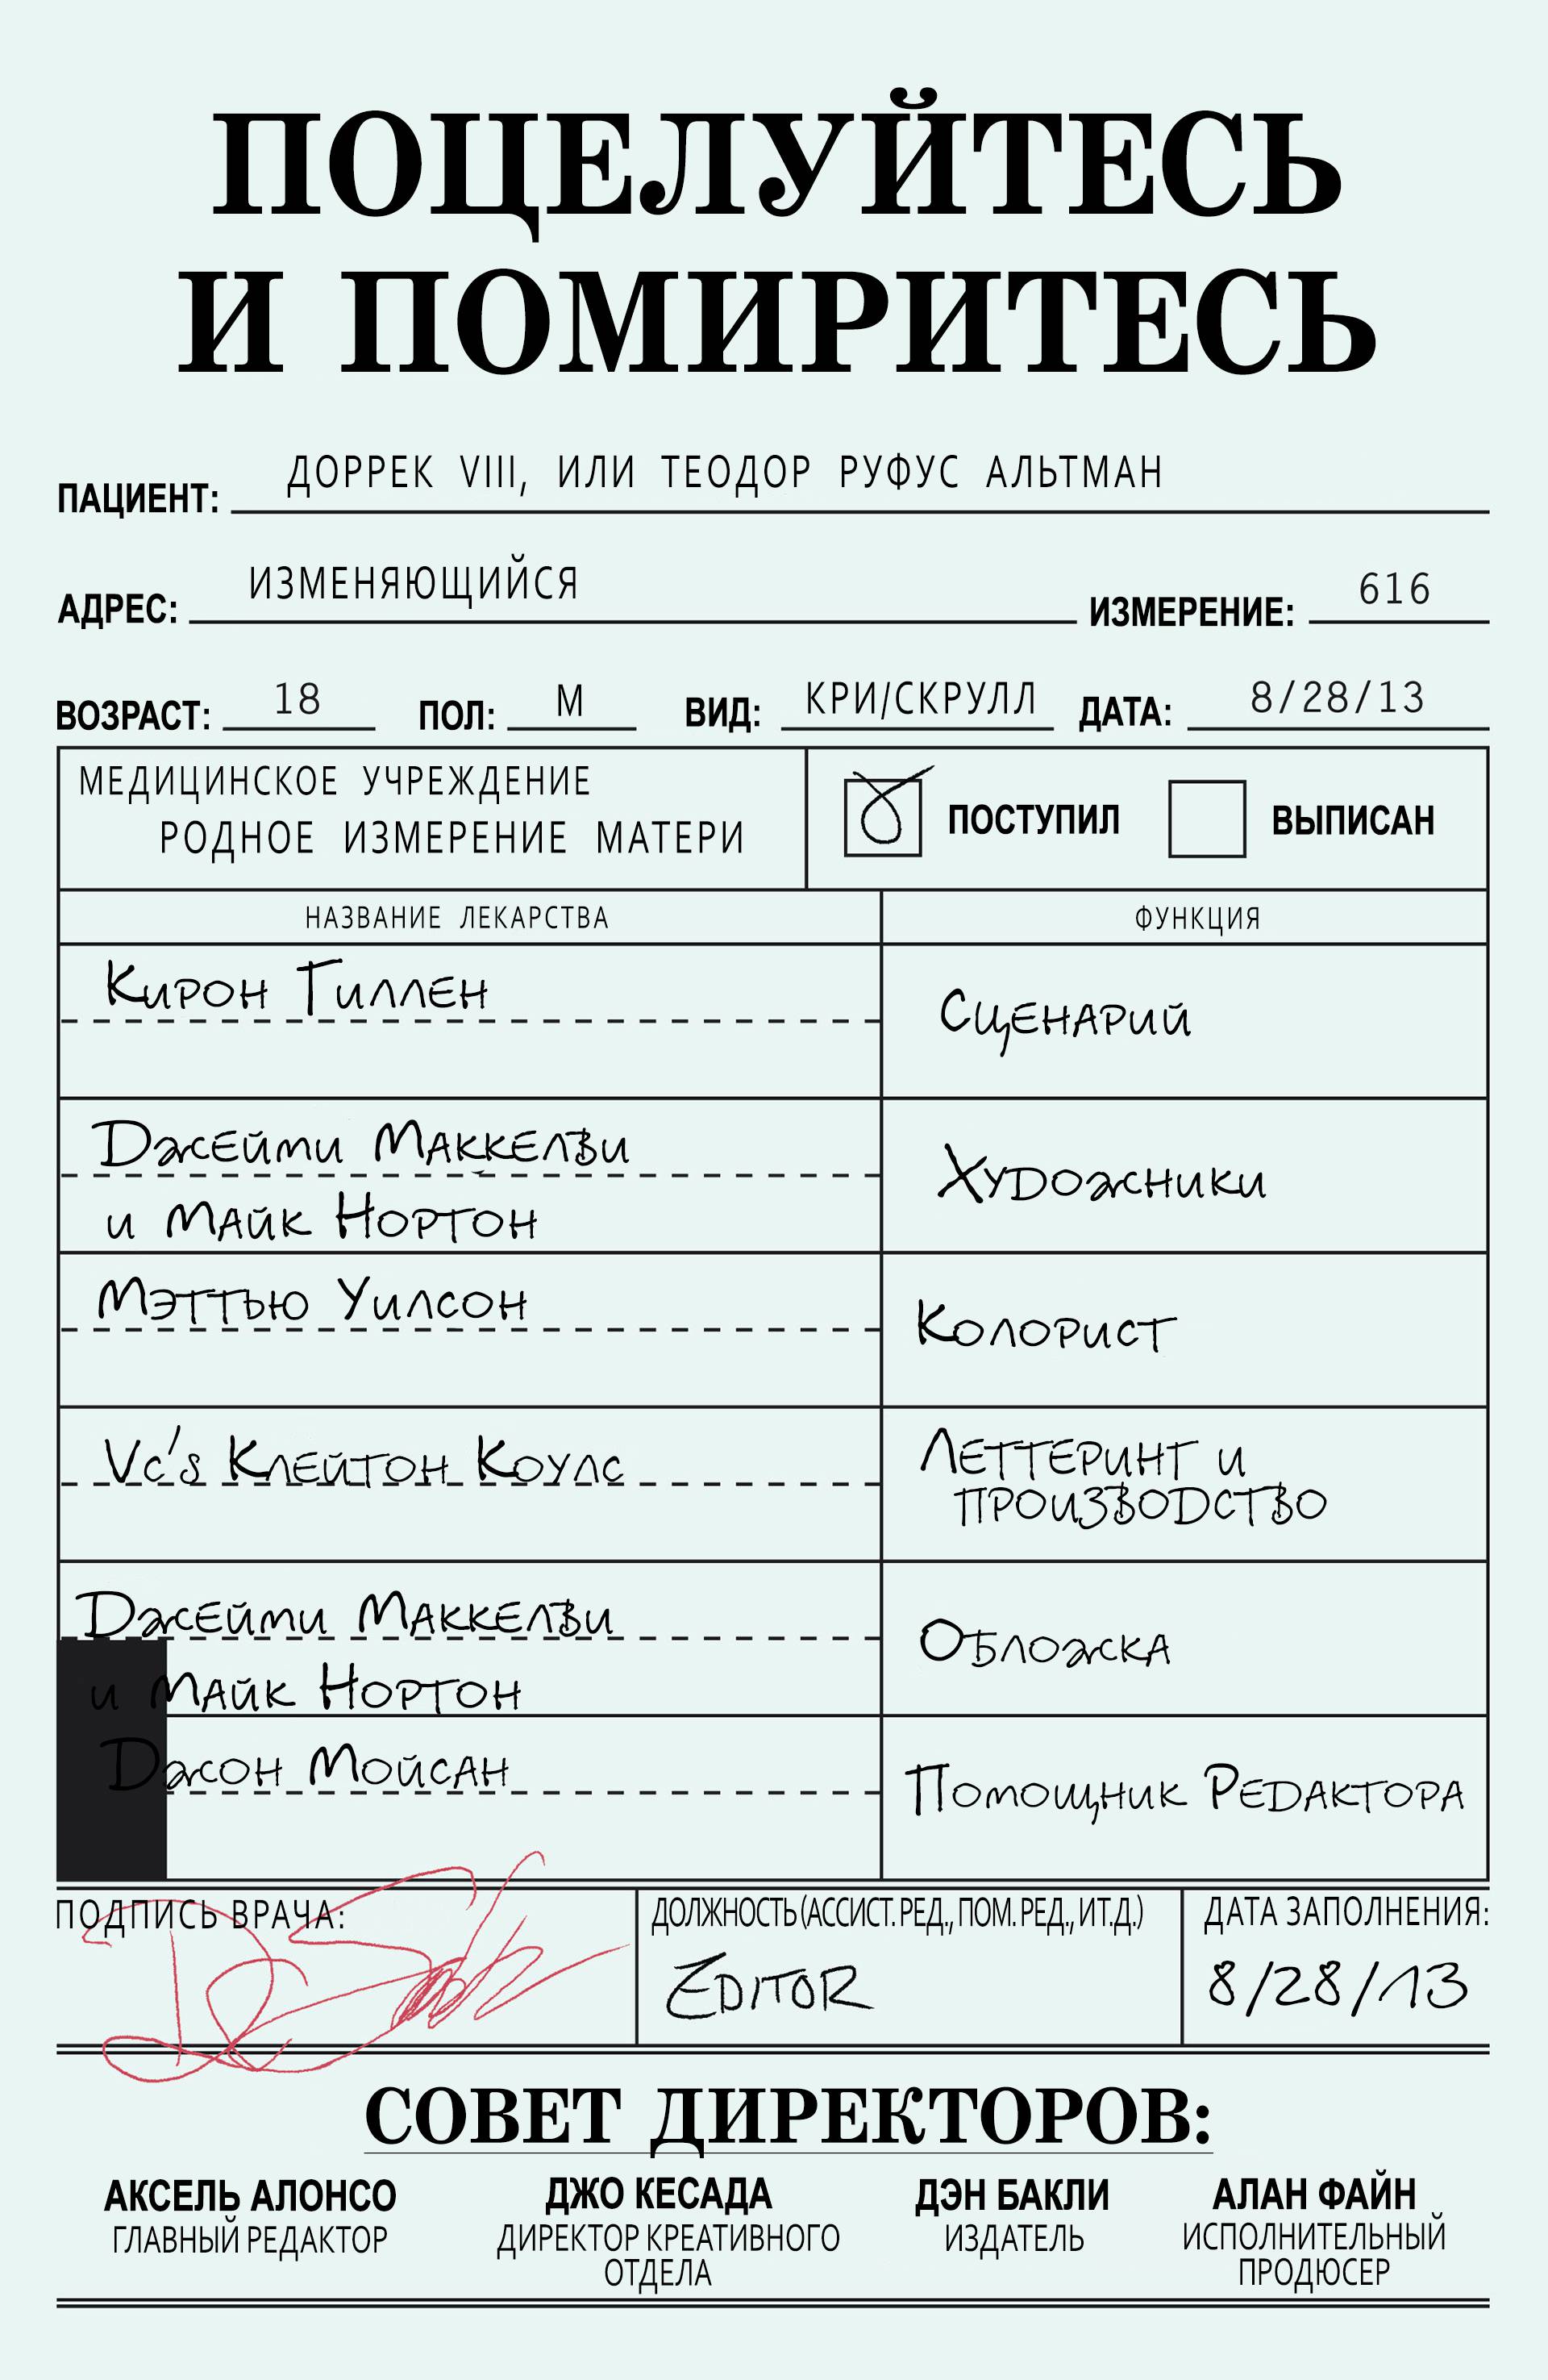 ПОЦЕЛУЙТЕСЬ
И ПОМИРИТЕСЬ
ПАЦИЕНТ: ДОРРЕК VIII, ИЛИ ТЕОДОР РУФУС АЛЬТМАН
АДРЕС: ИЗМЕНЯЮЩИЙСЯ ИЗМЕРЕНИЕ: 616
ВОЗРАСТ: 18 ПОЛ: М ВИД: КРИ/СКРУЛЛ ДАТА: 8/28/13
МЕДИЦИНСКОЕ УЧРЕЖДЕНИЕ
РОДНОЕ ИЗМЕРЕНИЕ МАТЕРИ
ПОСТУПИЛ ВЫПИСАН
НАЗВАНИЕ ЛЕКАРСТВА ФУНКЦИЯ
Кирон Гиллен
Сценарий
Джейми Маккелви
и Майк Нортон
Художники
Мэттью Уилсон
Колорист
Vc's Клейтон Коулс
Леттеринг и
производство
Джейми Маккелви
и Майк Нортон
Обложка
Джон Мойсан
Помощник Редактора
ПОДПИСЬ ВРАЧА:
ДОЛЖНОСТЬ (АССИСТ. РЕД., ПОМ. РЕД., ИТ.Д.)
EDITOR
ДАТА ЗАПОЛНЕНИЯ:
8/28/13
СОВЕТ ДИРЕКТОРОВ:
АКСЕЛЬ АЛОНСО
ГЛАВНЫЙ РЕДАКТОР
ДЖО КЕСАДА
ДИРЕКТОР КРЕАТИВНОГО
ОТДЕЛА
ДЭН БАКЛИ
ИЗДАТЕЛЬ
АЛАН ФАЙН
ИСПОЛНИТЕЛЬНЫЙ
ПРОДЮСЕР